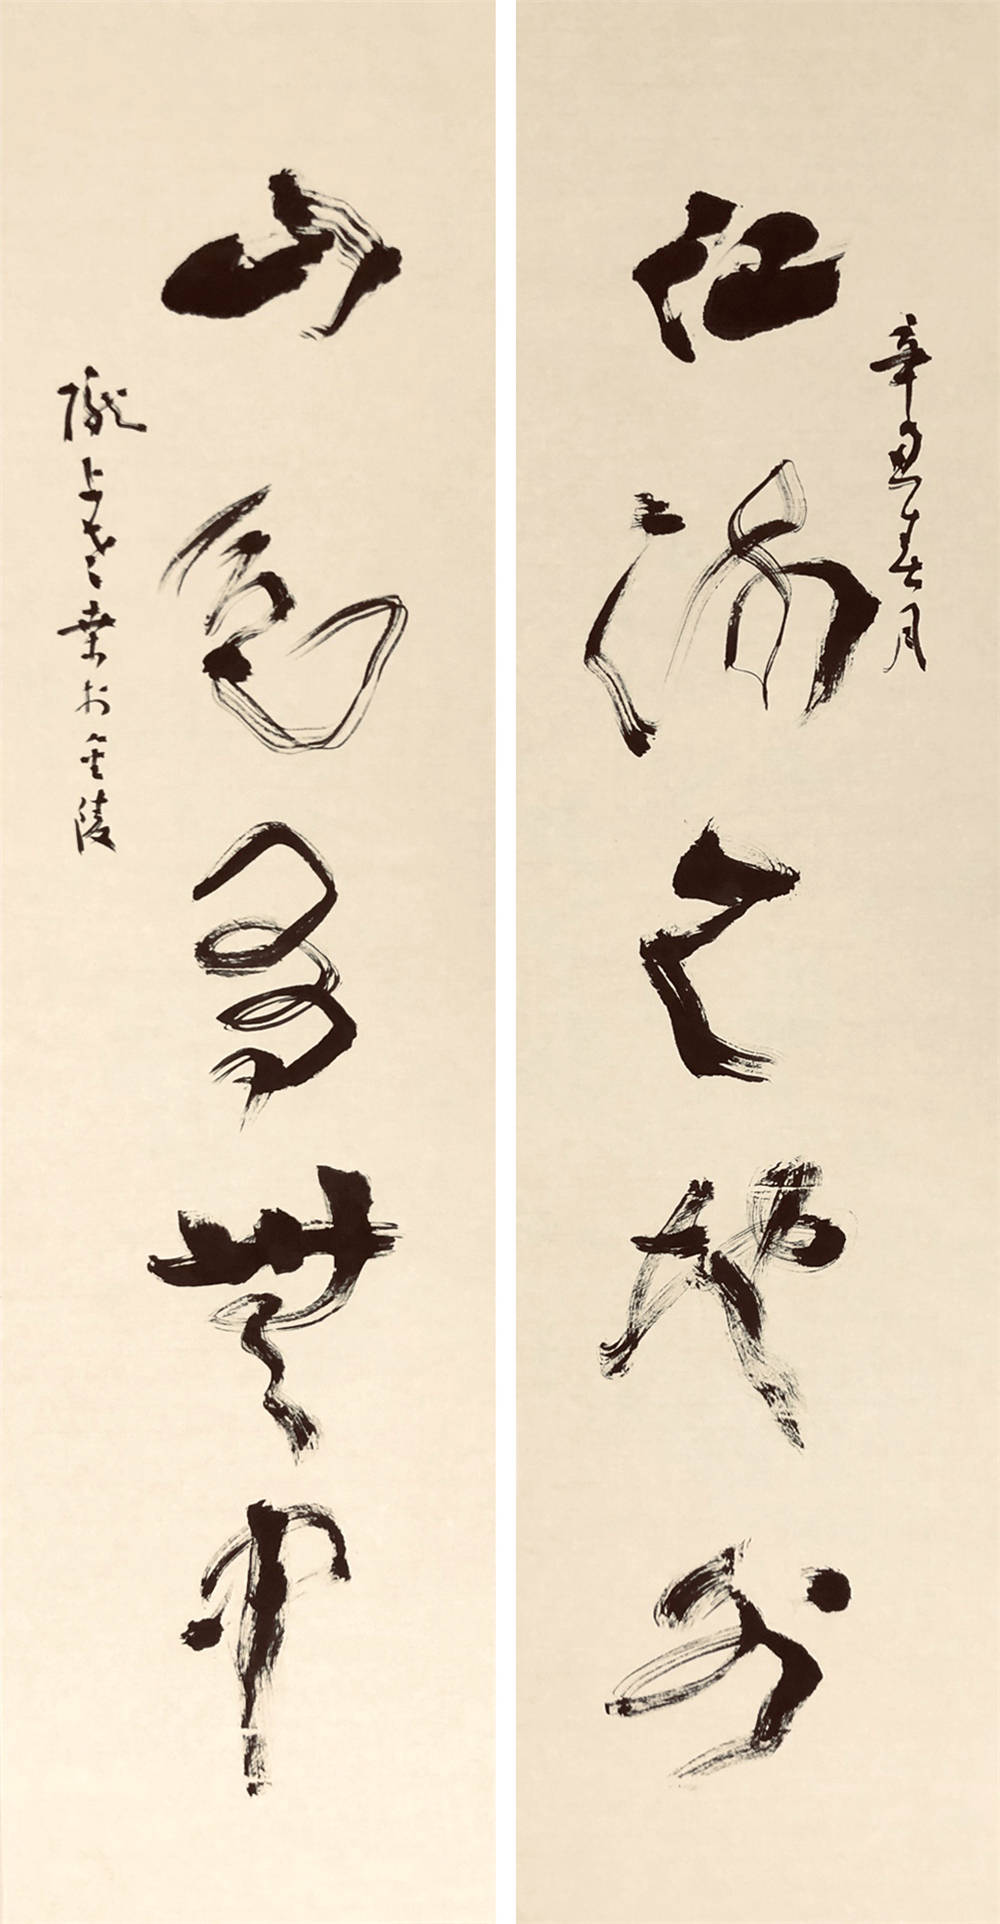 辛丑春月
江流天地外
山色有無中
隴上老桑於金陵